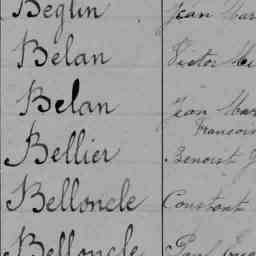 Beglin Jean Mar
Belan Victor
Belan Jean Mar
Francois
Bellier Benoist J
Belloncle Constant
Belloncle Paul